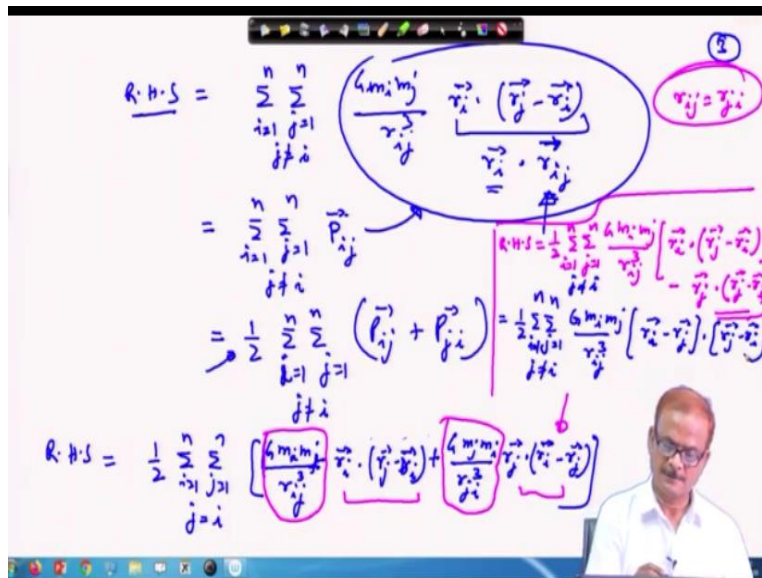 ①
R.H.S = \sum_{i=1}^{n} \sum_{j=1, j≠i}^{n} \frac{G m_i m_j}{r_{ij}^3} \vec{r_i} · (\vec{r_j} - \vec{r_i})
\vec{r_i} · \vec{r_{ij}}
r_{ij} = r_{ji}
= \sum_{i=1}^{n} \sum_{j=1, j≠i}^{n} \vec{P_{ij}}
R.H.S = \frac{1}{2} \sum_{i=1}^{n} \sum_{j=1, j≠i}^{n} \frac{G m_i m_j}{r_{ij}^3} [ \vec{r_i} · (\vec{r_j} - \vec{r_i})
- \vec{r_j} · (\vec{r_j} - \vec{r_i}
= \frac{1}{2} \sum_{i=1}^{n} \sum_{j=1, j≠i}^{n} ( \vec{P_{ij}} + \vec{P_{ji}} )
= \frac{1}{2} \sum_{i=1}^{n} \sum_{j=1, j≠i}^{n} \frac{G m_i m_j}{r_{ij}^3} [ \vec{r_i} - \vec{r_j} ] · [ \vec{r_j} - \vec{r_i} ]
R.H.S = \frac{1}{2} \sum_{i=1}^{n} \sum_{j=1, j=i}^{n} [ \frac{G m_i m_j}{r_{ij}^3} \vec{r_i} · (\vec{r_j} - \vec{r_i}) + \frac{G m_j m_i}{r_{ji}^3} \vec{r_j} · (\vec{r_i} - \vec{r_j}) ]